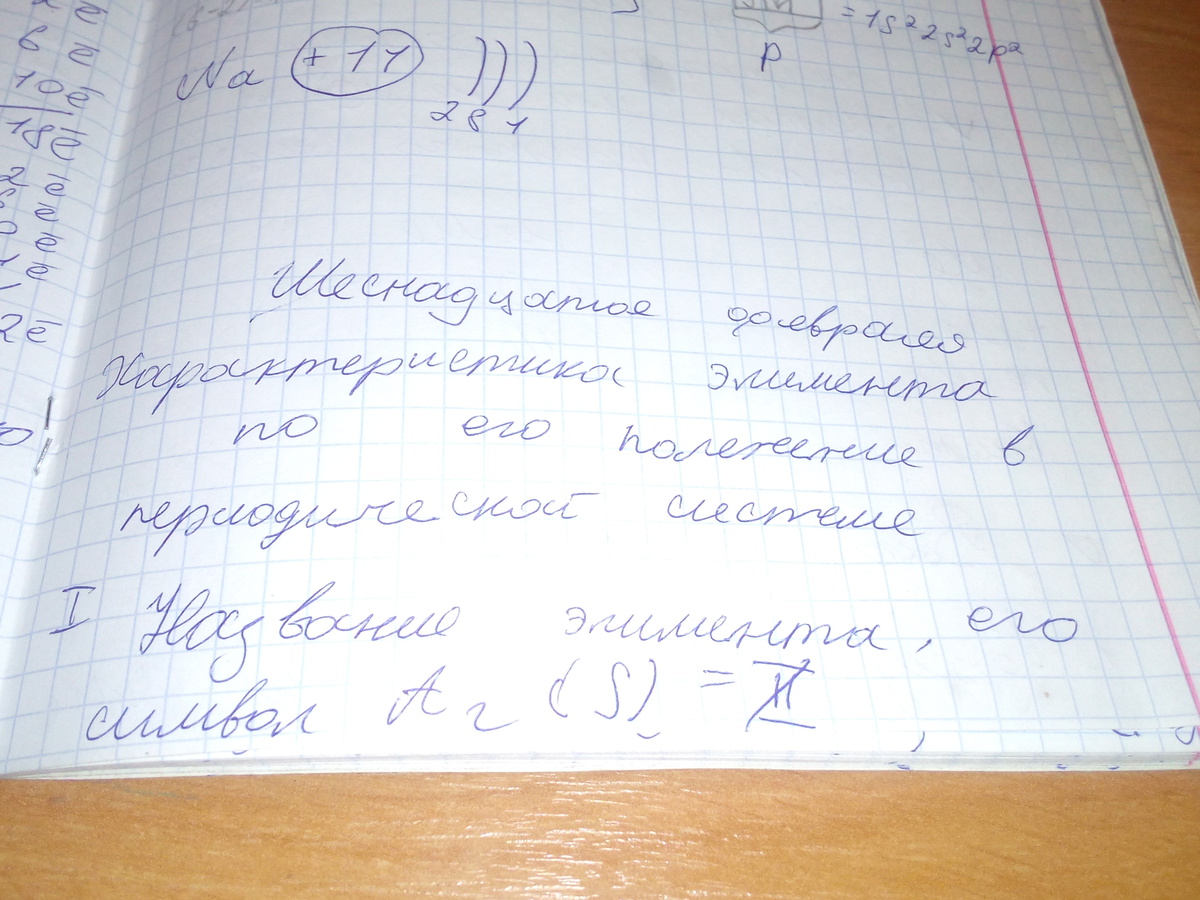 6 ē
10ē
18ē
2 ē
ē
ē
1 ē
2ē
= 1s² 2s² 2p²
p
Na +11 )))
2 8 1
Шеснадцатое февраля
Характеристика элимента
по его положение в
периодической системе
I Название элимента, его
символ Ar (S) =